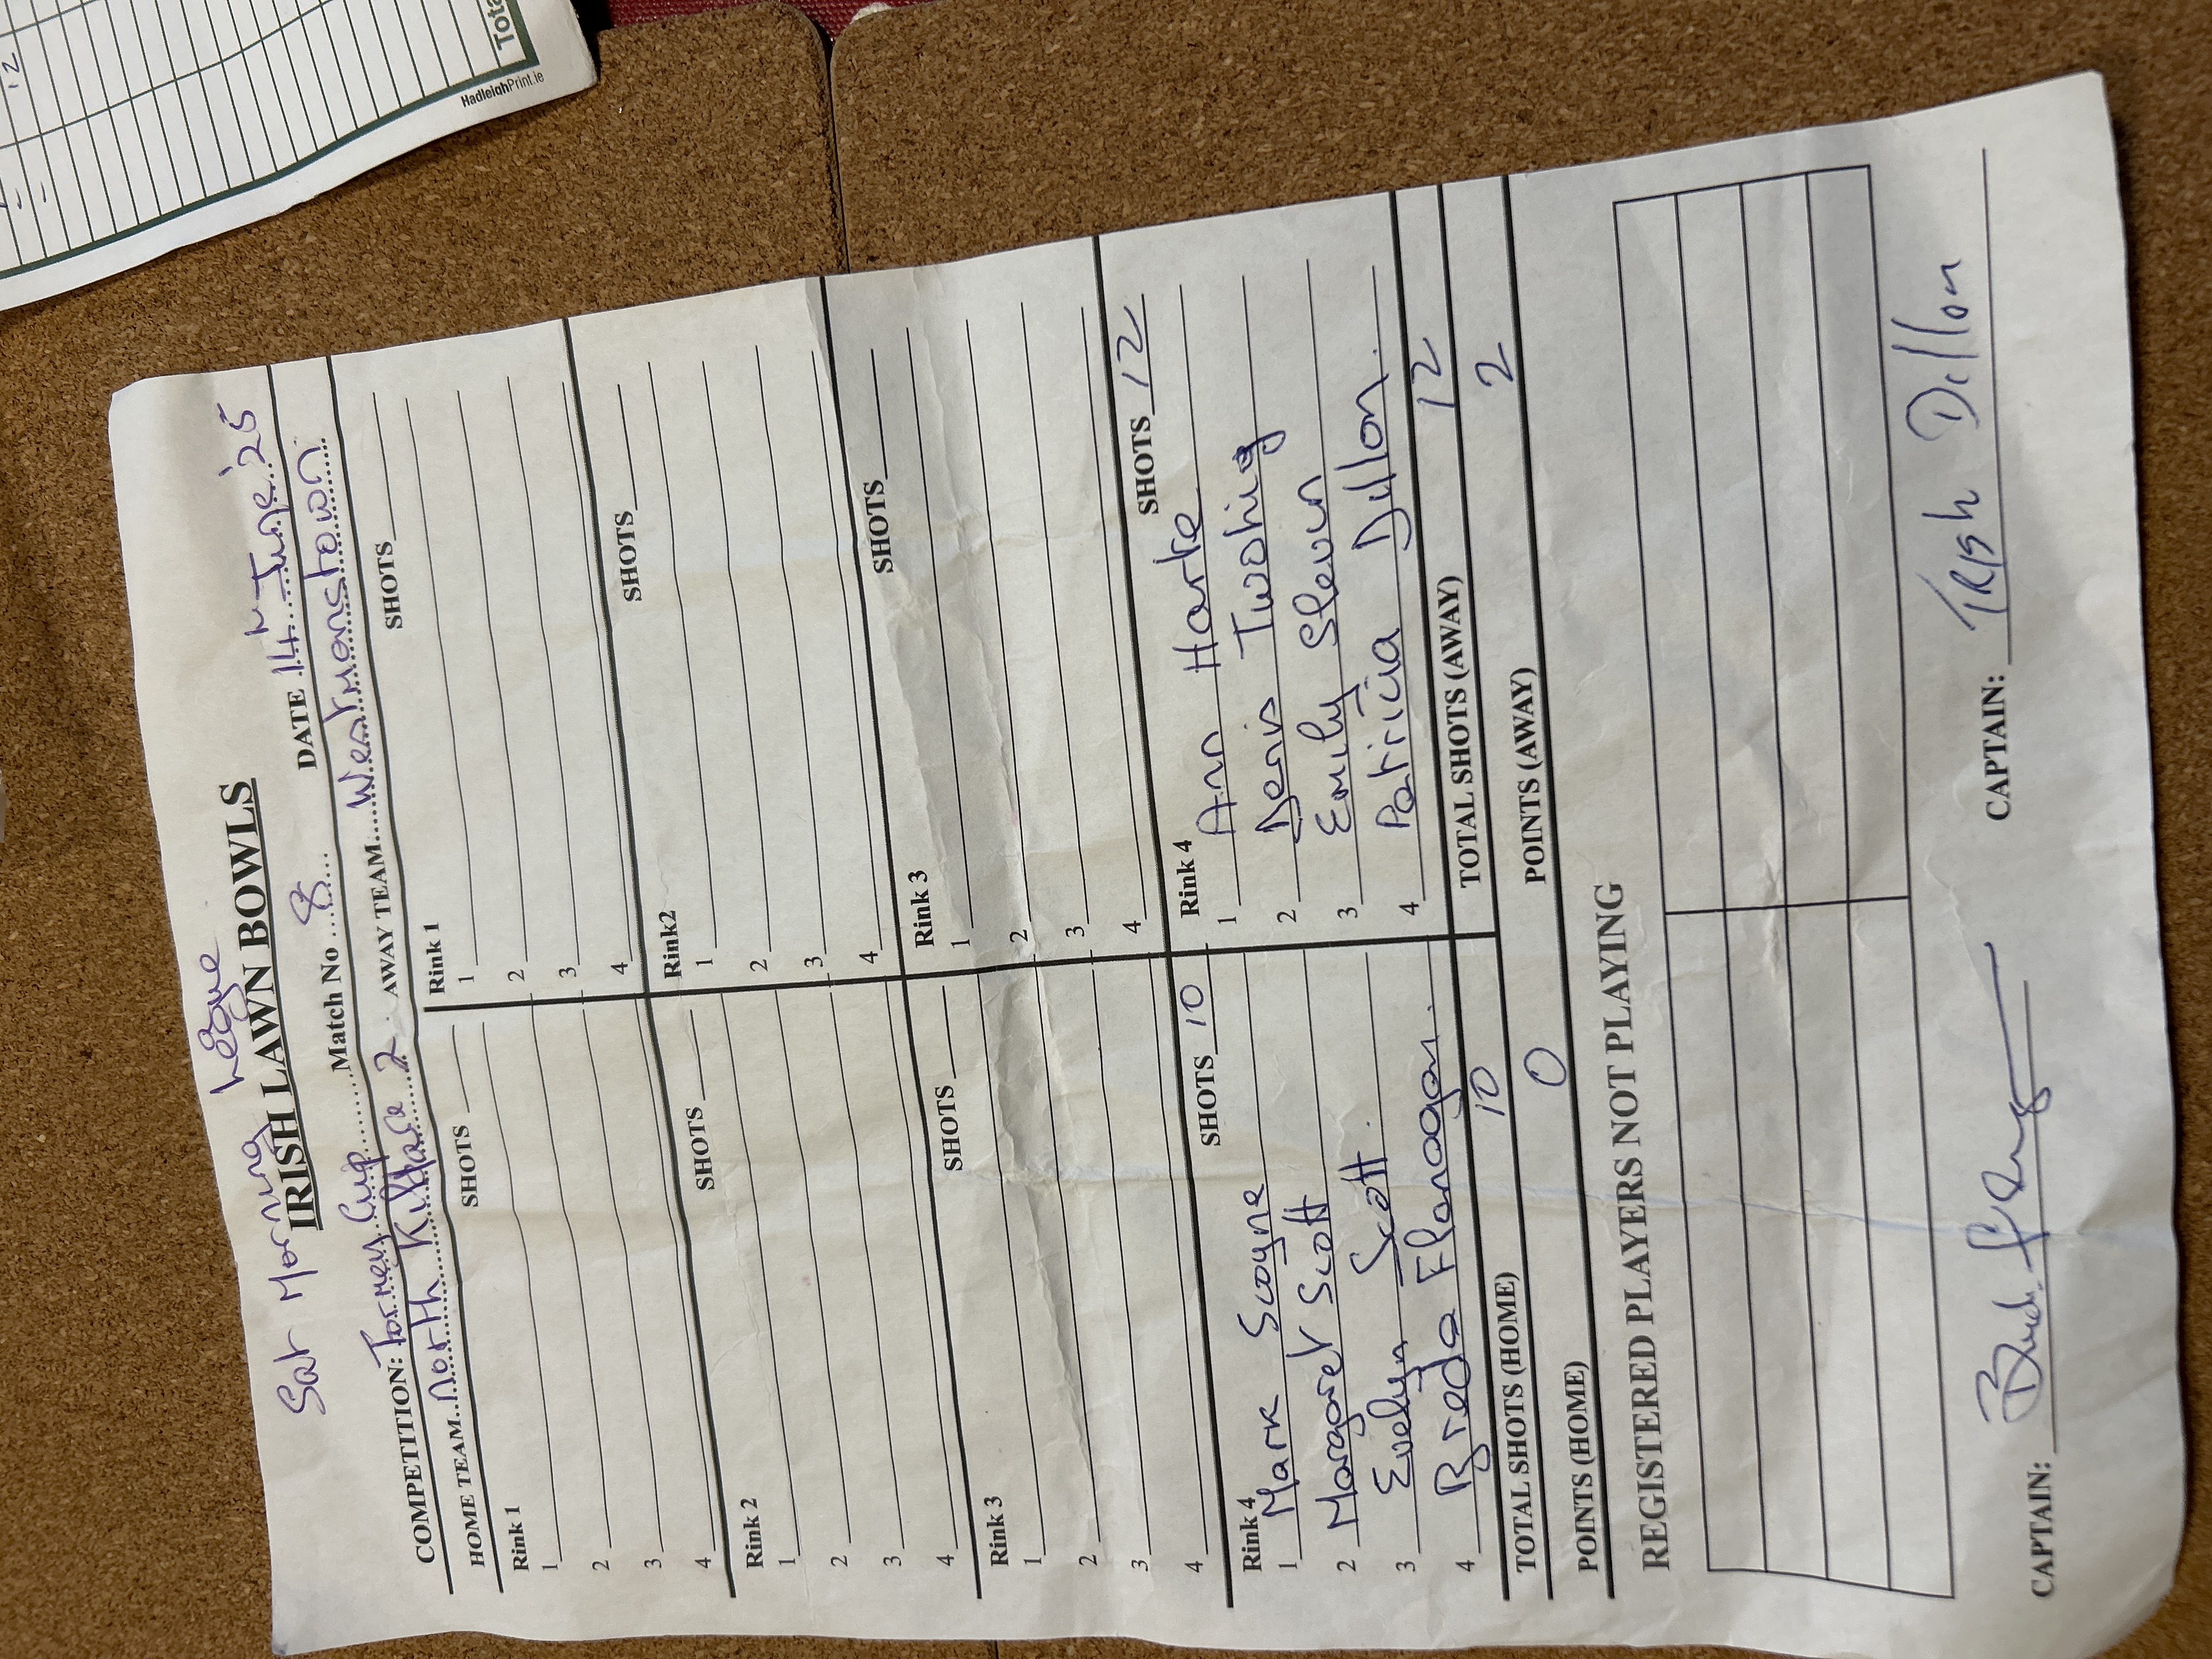 Sat Morning League
IRISH LAWN BOWLS
COMPETITION: Tormey Cup Match No 8 DATE 14th June '25
HOME TEAM North Kildare 2 AWAY TEAM Westmanstown
SHOTS SHOTS
Rink 1 Rink 1
1 1
2 2
3 3
4 4
SHOTS SHOTS
Rink 2 Rink2
1 1
2 2
3 3
4 4
SHOTS SHOTS
Rink 3 Rink 3
1 1
2 2
3 3
4 4
SHOTS 10 SHOTS 12
Rink 4 Rink 4
1 Mark 1 Ann Harte
2 Margaret Scott 2 Denis Twohig
3 Evelyn Scott 3 Emily Slevin
4 Breda Flanagan. 4 Patricia Dillon.
TOTAL SHOTS (HOME) 10 TOTAL SHOTS (AWAY) 12
POINTS (HOME) 0 POINTS (AWAY) 2
REGISTERED PLAYERS NOT PLAYING
CAPTAIN: CAPTAIN: Trish Dillon
12
Tota
HadleighPrint.ie